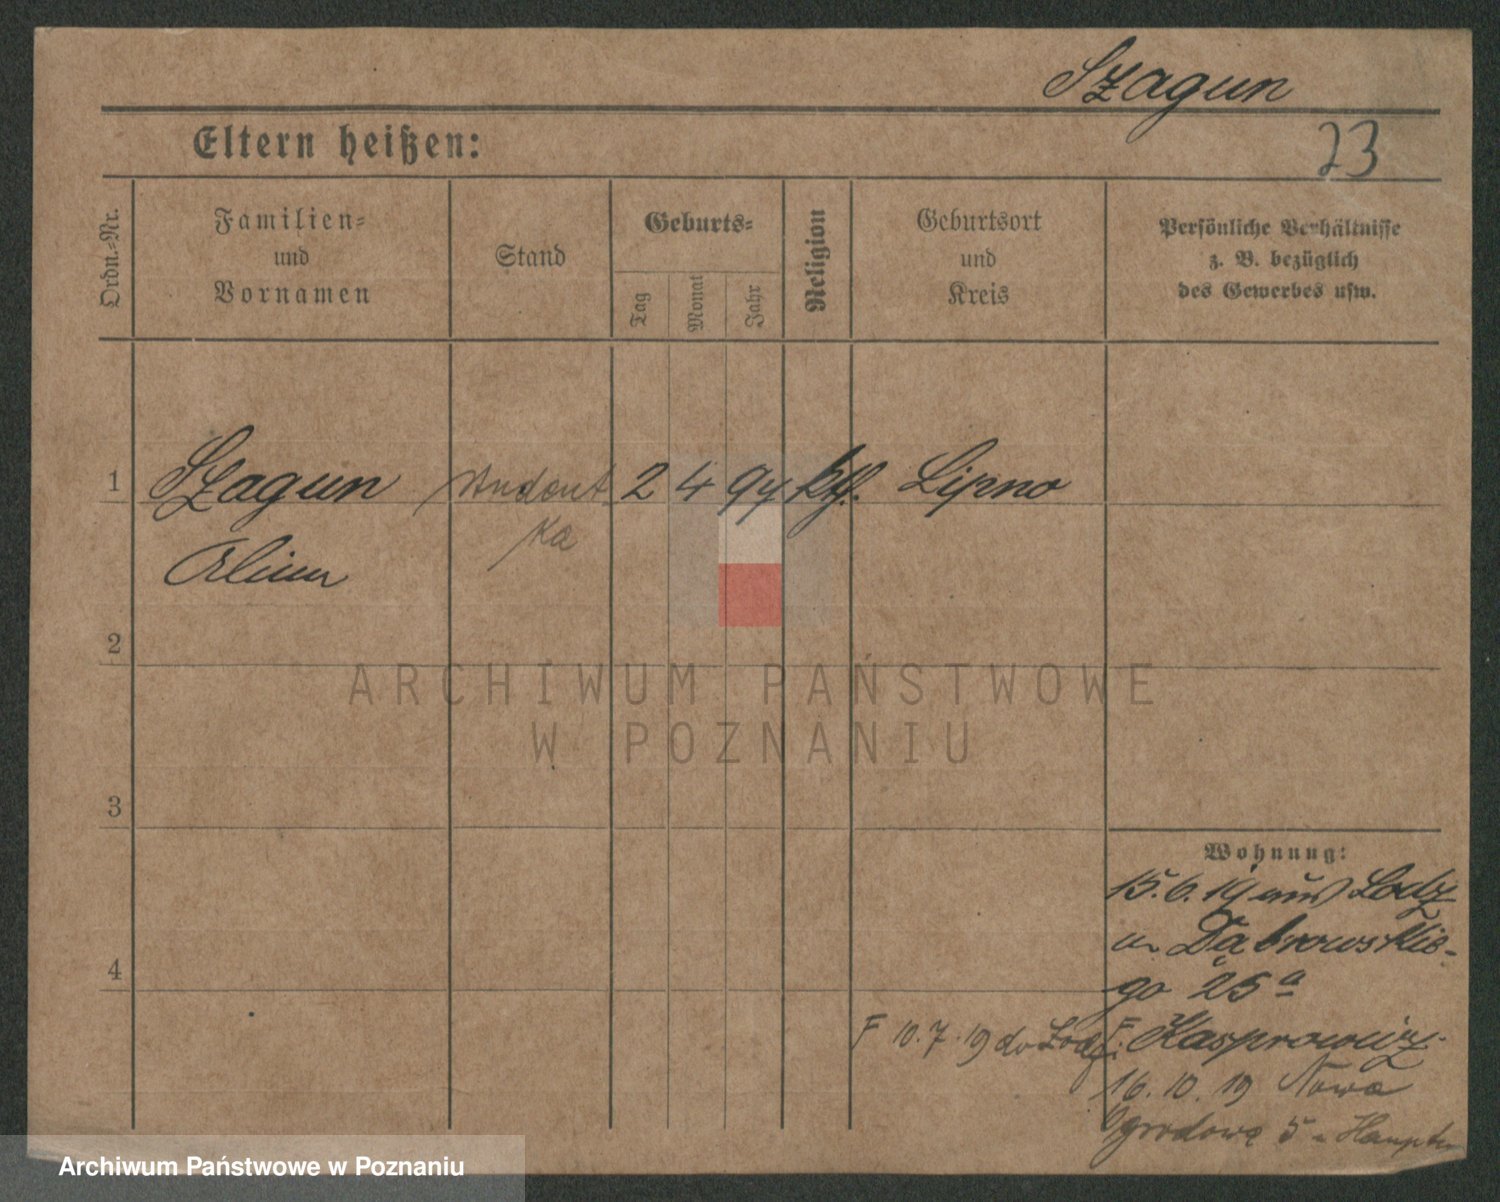 Szagun
Eltern heißen:
23
Ordn.=Nr.
Familien=
und
Vornamen
Stand
Geburts=
Tag
Monat
Jahr
Religion
Geburtsort
und
Kreis
Persönliche Verhältnisse
z. B. bezüglich
des Gewerbes usw.
1
Szagun
Student
2 4 94 ktl. Lipno
ka
2
ARCHIWUM PAŃSTWOWE
W POZNANIU
3
Wohnung:
15.6.19 aus Lodz
Dąbrowskie-
4
go 25a
F 10.7.19 do Lodzi
F. Kasprowicz
16.10.19 Nowa
Ogrodowa 5
Archiwum Państwowe w Poznaniu